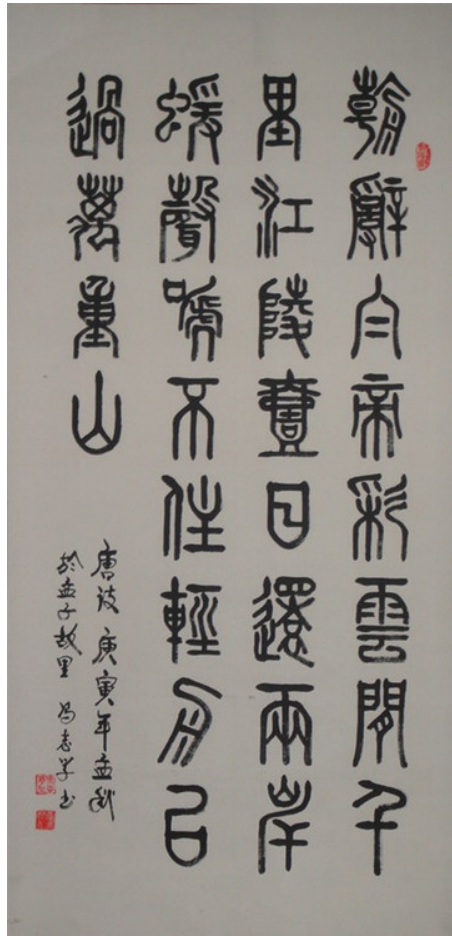 朝辭白帝彩雲間千
里江陵壹日還兩岸
蝯聲嗁不住輕舟已
過萬重山
唐诗 庚寅年孟秋
於孟子故里 馮志学书